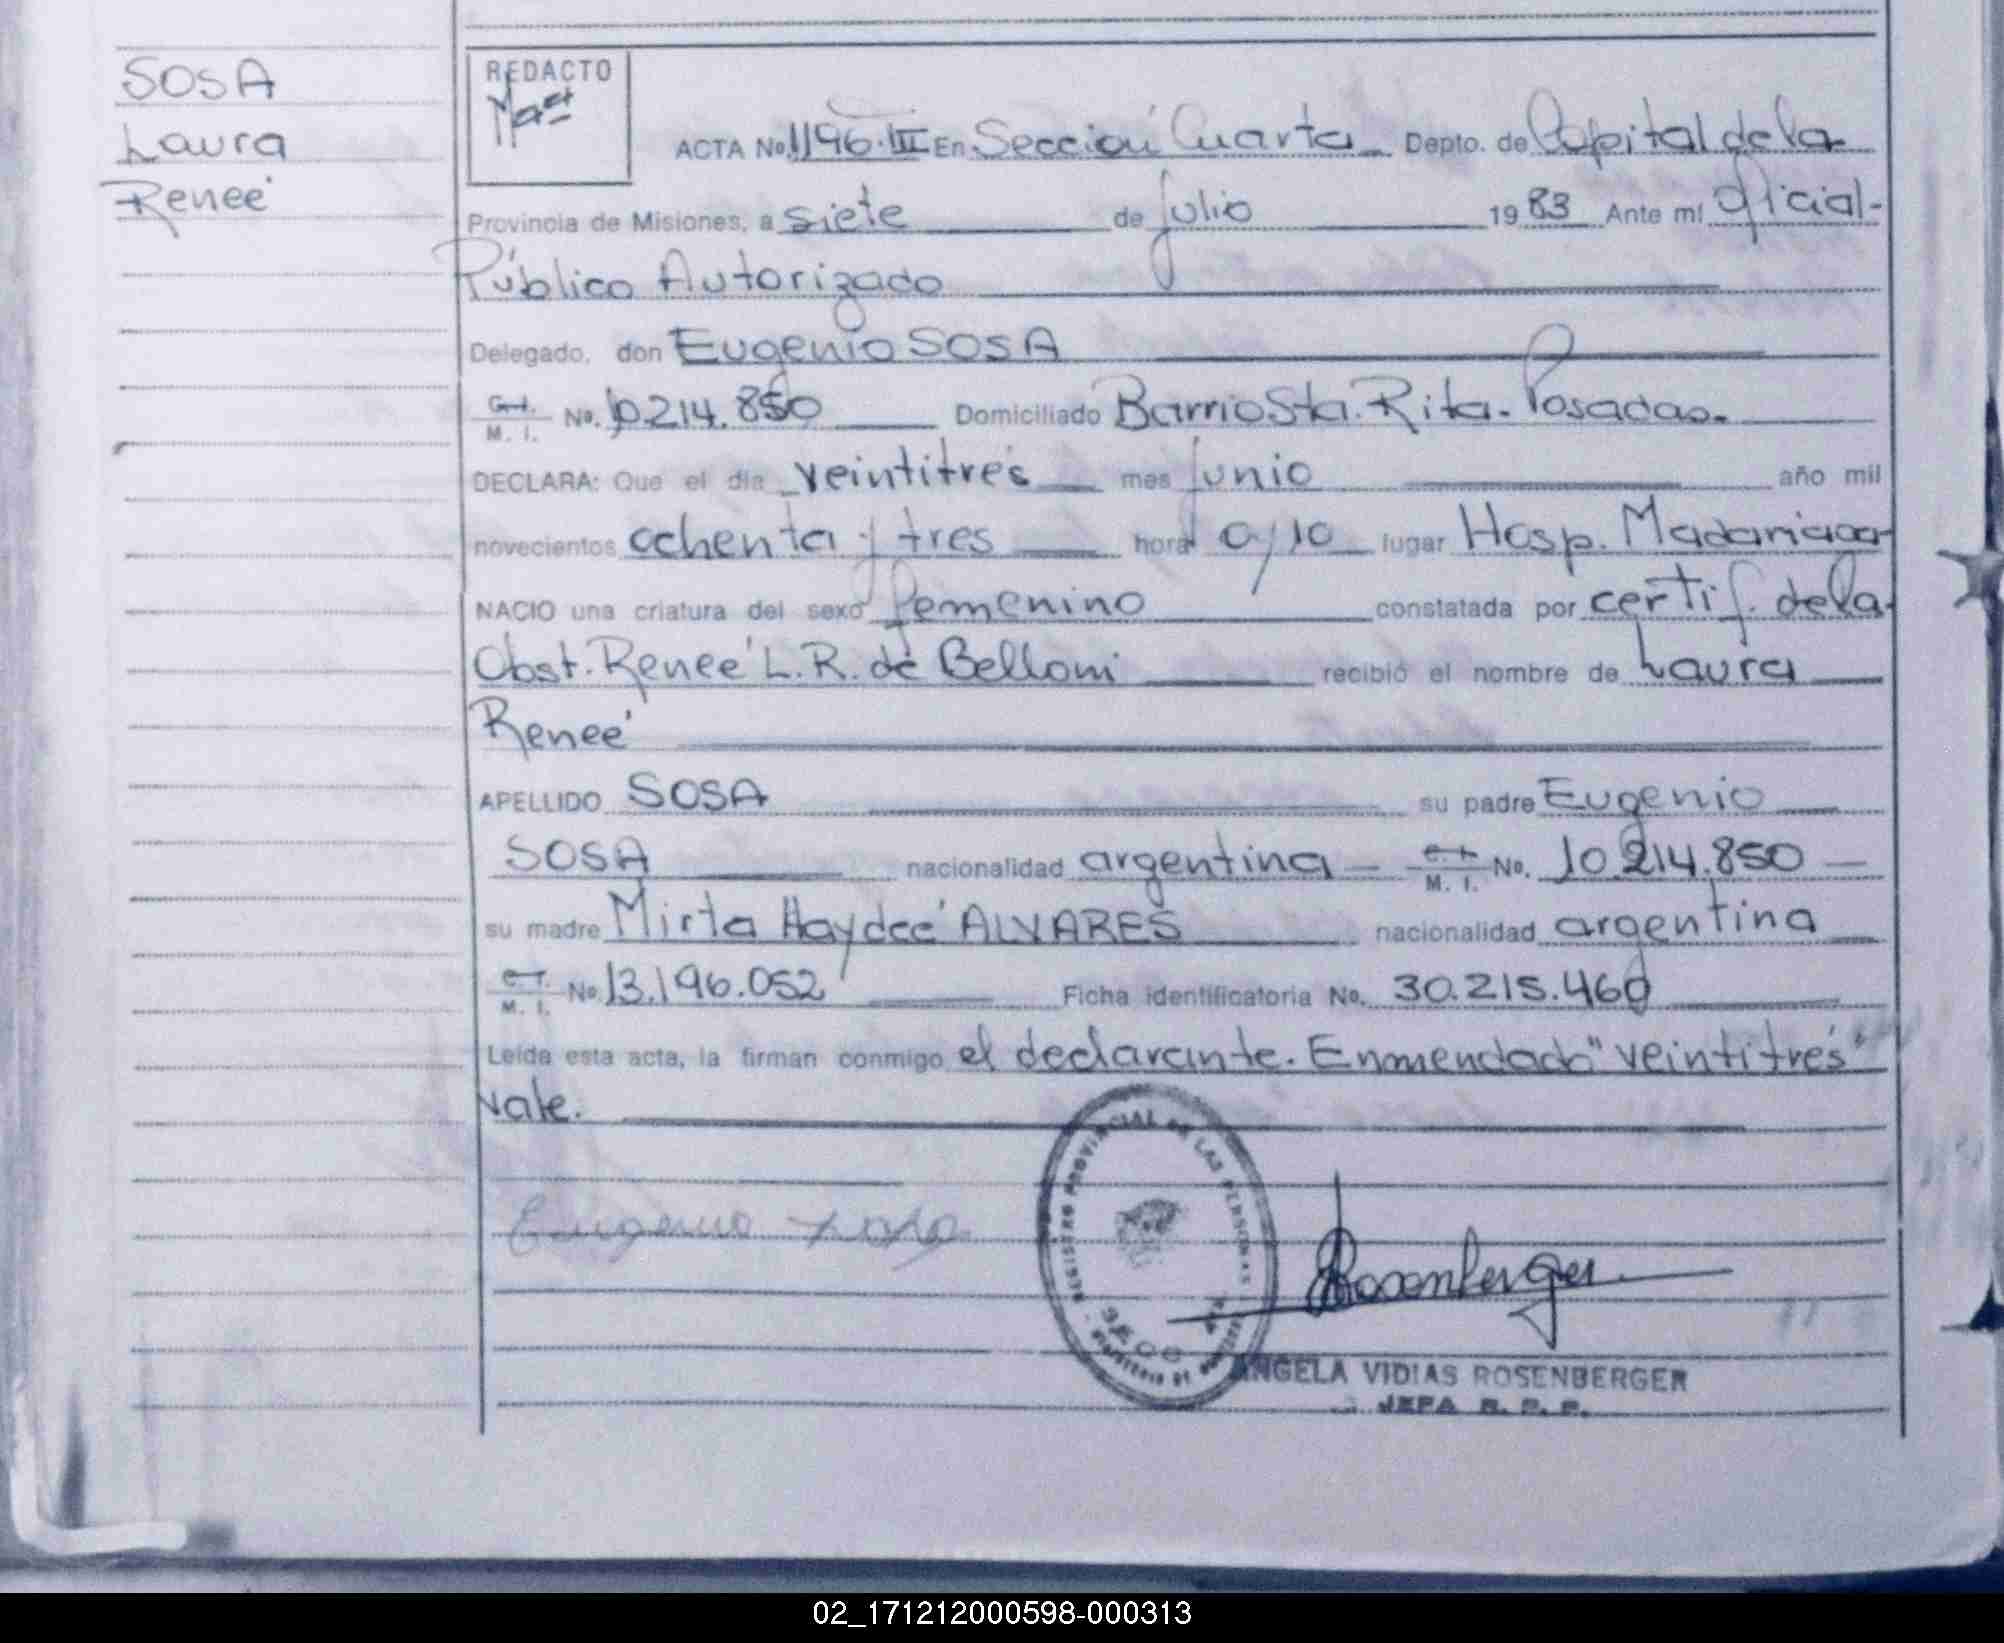 SOSA
Laura
Reneé
REDACTO
ACTA No. 1196.III En Sección Cuarta Depto. de Capital de la
Provincia de Misiones, a siete de julio 1983 Ante mí Oficial
Público Autorizado
Delegado, don Eugenio SOSA
C.I. M. I. No. 10.214.850 Domiciliado Barrio Sta. Rita. Posadas.
DECLARA: Que el día veintitrés mes junio año mil
novecientos ochenta y tres hora 0/10 lugar Hosp. Madariaga
NACIO una criatura del sexo femenino constatada por certif. de la
Obst. Reneé L. R. de Belloni recibió el nombre de Laura
Reneé
APELLIDO SOSA su padre Eugenio
SOSA nacionalidad argentina C. I. M. I. No. 10.214.850
su madre Mirta Haydeé ALVARES nacionalidad argentina
C. I. M. I. No. 13.196.052 Ficha identificatoria No. 30.215.460
Leída esta acta, la firman conmigo el declarante. Enmendado "veintitrés"
vale.
REGISTRO PROVINCIAL DE LAS PERSONAS
Eugenio Sosa
Rosenberger
ANGELA VIDIAS ROSENBERGER
JEFA R. P. P.
02_171212000598-000313